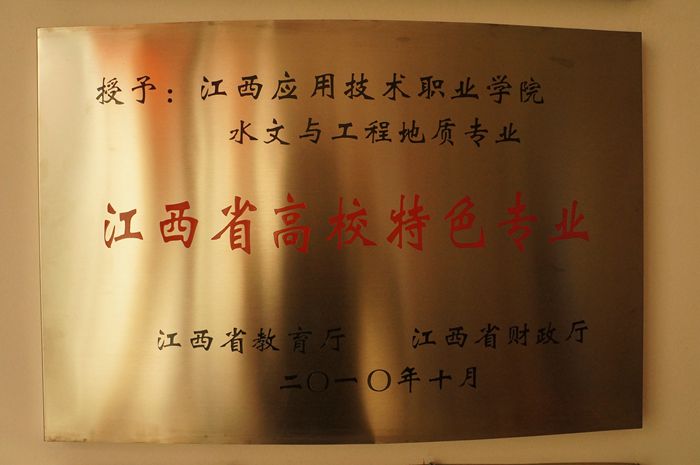 授予：江西应用技术职业学院
水文与工程地质专业
江西省高校特色专业
江西省教育厅 江西省财政厅
二〇一〇年十月